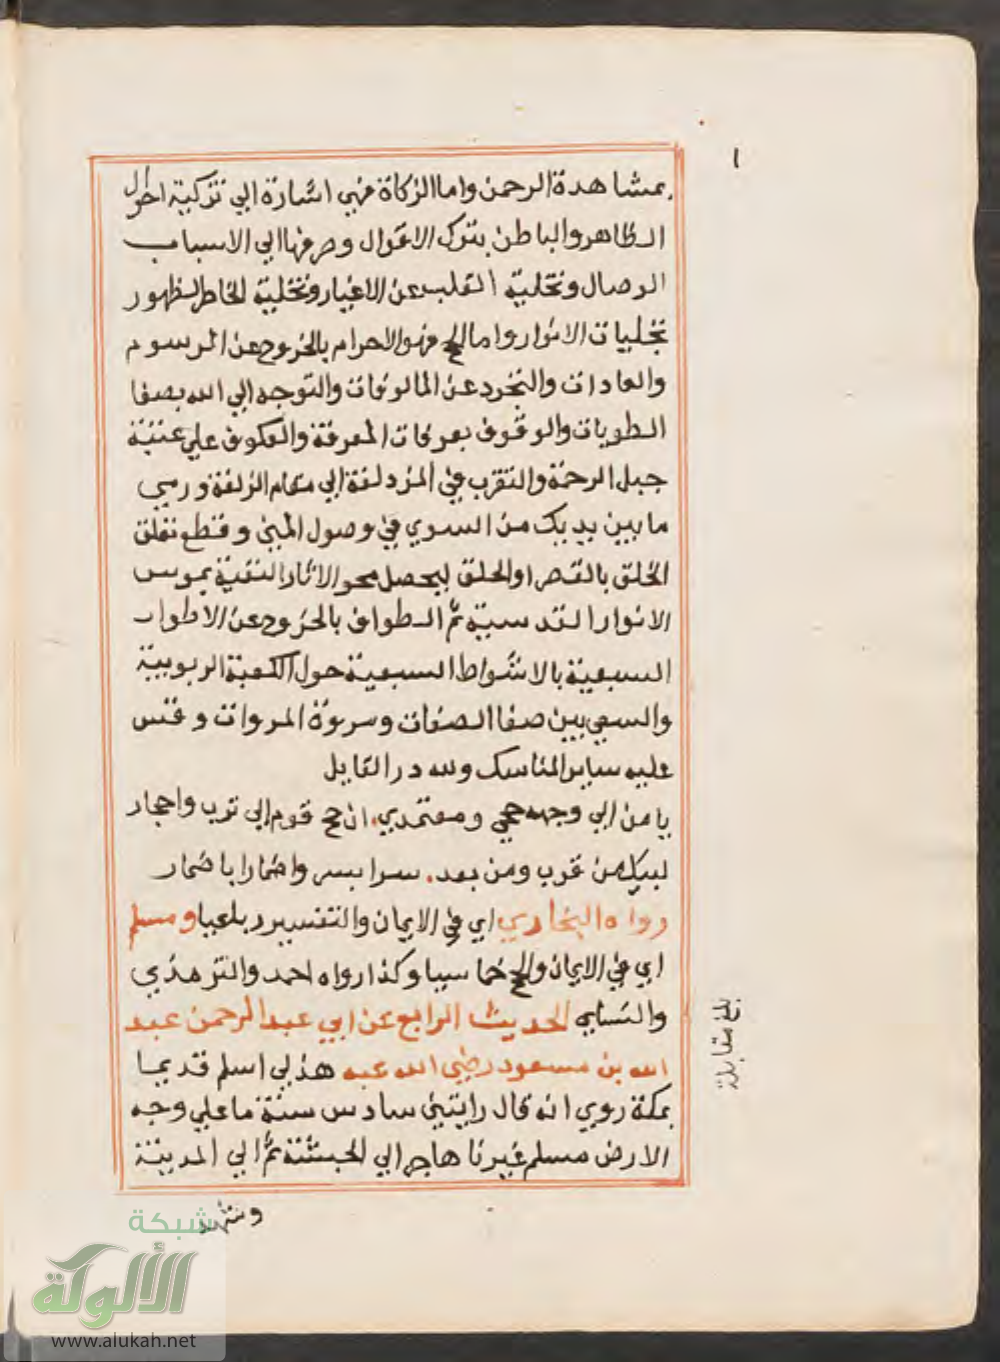 ١
بمشاهدة الرحمن واما الزكاة فهي اشارة الي تزكية احوال
الظاهر والباطن بترك الاقوال وصرفها الي الاسباب
الوصال وتحلية القلب عن الاغيار وتخلية الخاطر لظهور
تجليات الانوار واما الحج فهو الاحرام بالخروج عن الرسوم
والعادات والتجرد عن المالوفات والتوجه الي الله بصفا
الطويات والوقوف بعرفات المعرفة والعكوف علي عتبة
جبل الرحمة والتقرب في المزدلفة الي مقام الزلفة ورمي
ما بين يديك من السوي في وصول المني وقطع تعلق
الخلق بالقصر او الحلق ليحصل محو الاثار النفسية بموس
الانوار القدسية ثم الطواف بالخروج عن الاطوار
السبعية بالاشواط السبعية حول الكعبة الربوبية
والسعي بين صفا الصفات ومروة المروات وقس
عليه ساير المناسك ولله در القايل
يا من الي وجهه حجي ومعتمدي . ان حج قوم الي ترب واحجار
لبيك من قرب ومن بعد . سرا بسر واضمارا باضمار
رواه البخاري اي في الايمان والتفسير رباعيا ومسلم
اي في الايمان والحج خماسيا وكذا رواه احمد والترمذي
والنساي الحديث الرابع عن ابي عبد الرحمن عبد
الله بن مسعود رضي الله عنه هذلي اسلم قديما
بمكة روي انه قال رايتني سادس ستة ما علي وجه
الارض مسلم غيرنا هاجر الي الحبشة ثم الي المدينة
بلغ مقابلة
وشهد
شبكة
الألوكة
www.alukah.net